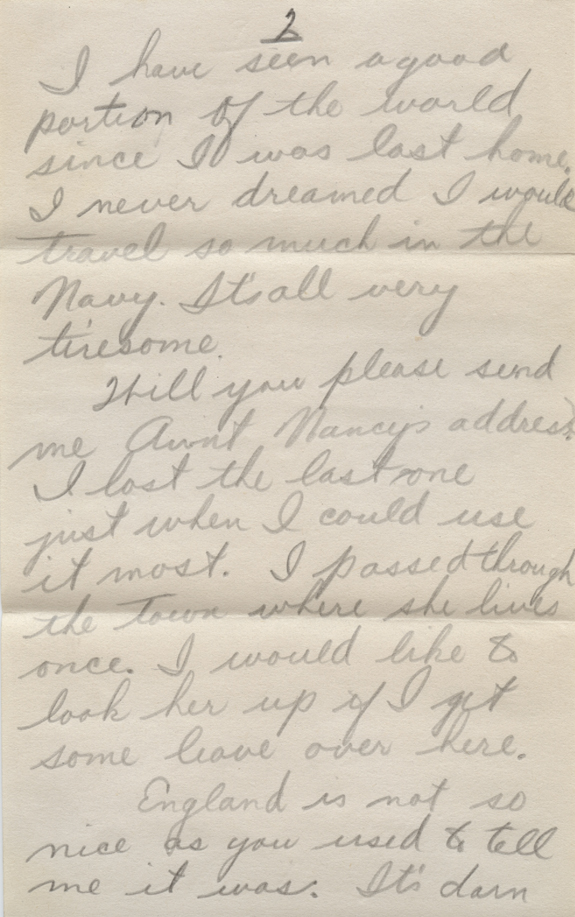 2
I have seen a good
portion of the world
since I was last home.
I never dreamed I would
travel so much in the
Navy. It's all very
tiresome.
Will you please send
me Aunt Nancy's address.
I lost the last one
just when I could use
it most. I passed through
the town where she lives
once. I would like to
look her up if I get
some leave over here.
England is not so
nice as you used to tell
me it was. It's darn